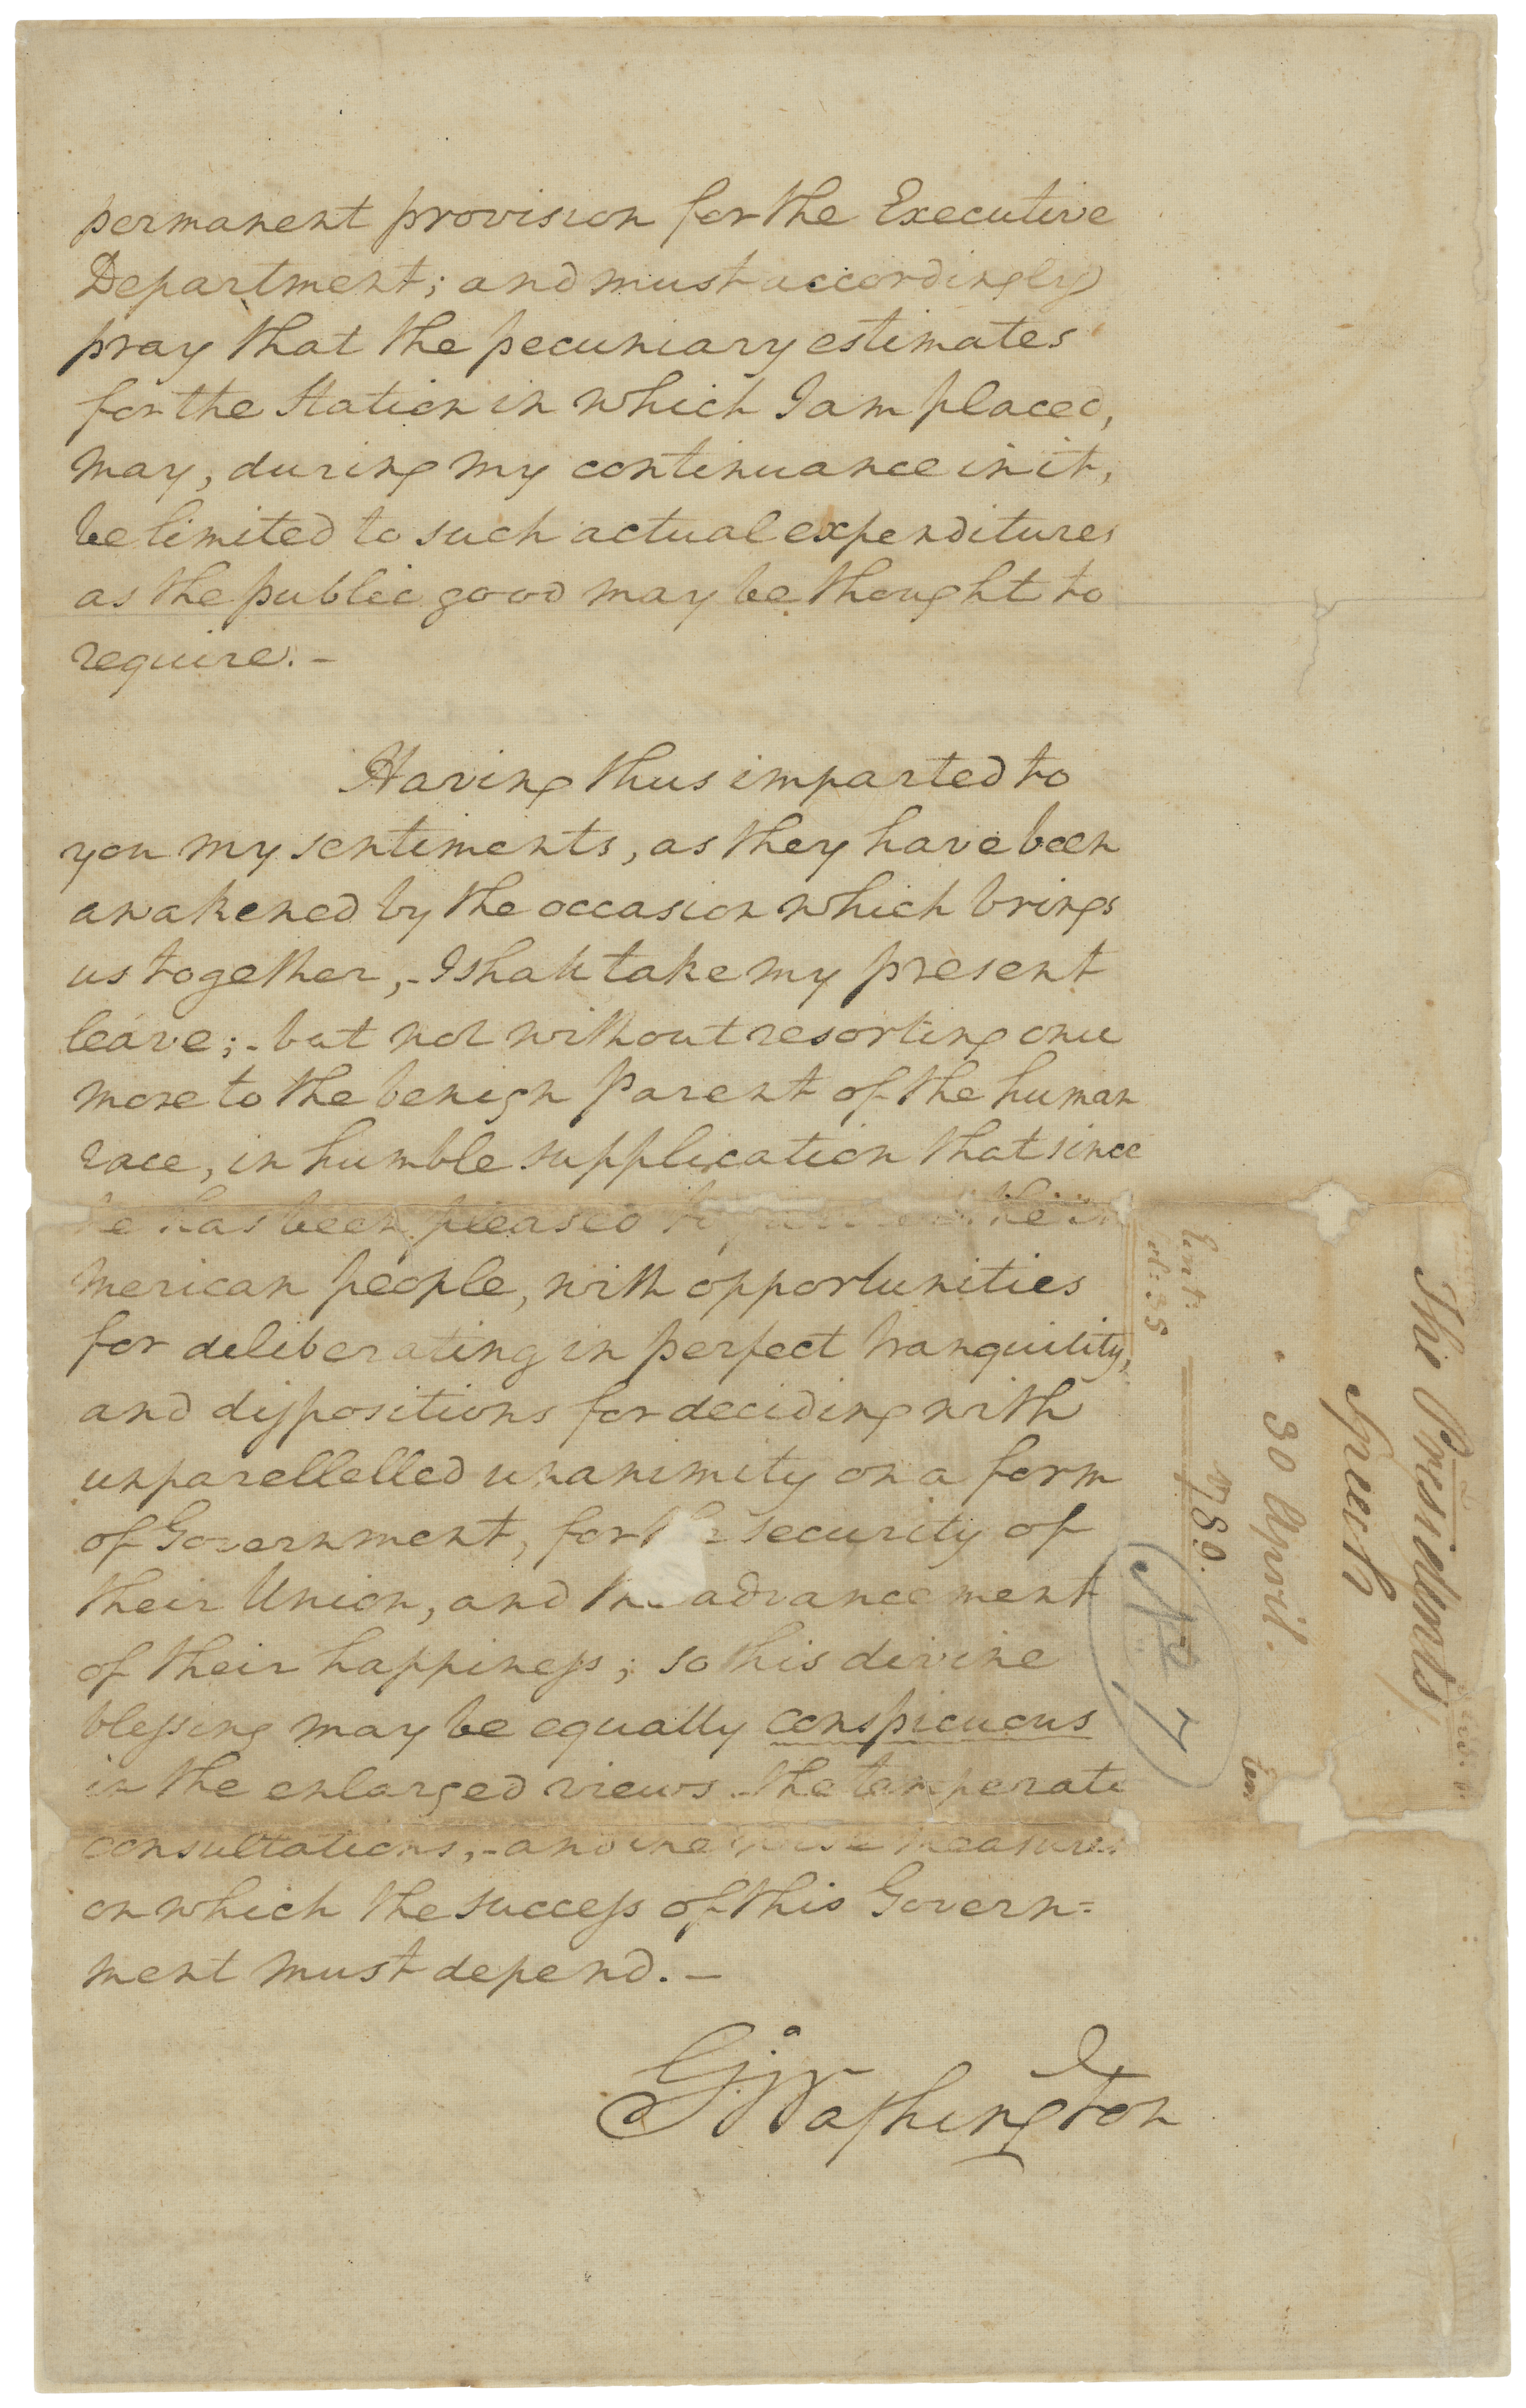 permanent provision for the Executive
Department; and must accordingly
pray that the pecuniary estimates
for the Station in which I am placed,
may, during my continuance in it,
be limited to such actual expenditures
as the public good may be thought to
require. -
Having thus imparted to
you my sentiments, as they have been
awakened by the occasion which brings
us together, - I shall take my present
leave; - but not without resorting once
more to the benign Parent of the human
race, in humble supplication that since
he has been pleased to the
merican people, with opportunities
for deliberating in perfect tranquility,
and dispositions for deciding with
unparellelled unanimity on a form
of Government, for the security of
their Union, and the advancement
of their happiness; so his divine
blessing may be equally conspicuous
in the enlarged views - the temperate
consultations, - and the wise measures
on which the success of this Govern=
ment must depend. -
G:Washington
The Presidents
Speech
30 April.
1789.
No 7